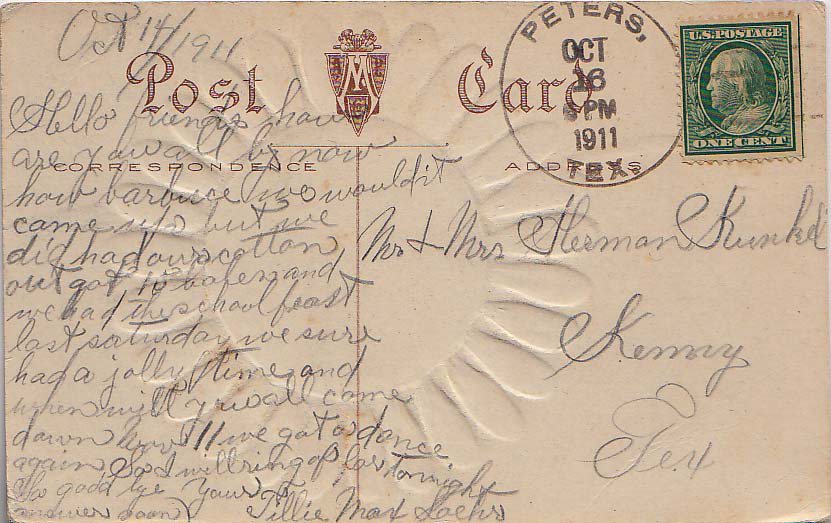 Oct 14/1911
Post Card
PETERS,
OCT
16
PM
1911
TEX.
U.S. POSTAGE
ONE CENT
CORRESPONDENCE
ADDRESS
Hello friends how
are you all by now
how barbuce we wouldit
came up but we
did had our cotton
out got 10 bales and
we had the school feast
last saturday we sure
had a jolly time and
when will you all come
down Nov 11 we got a dance
again So I will ring of for tonight
So good bye Yours
answer soon Tillie Max
Mr & Mrs Herman Kunkel
Kenny
Tex